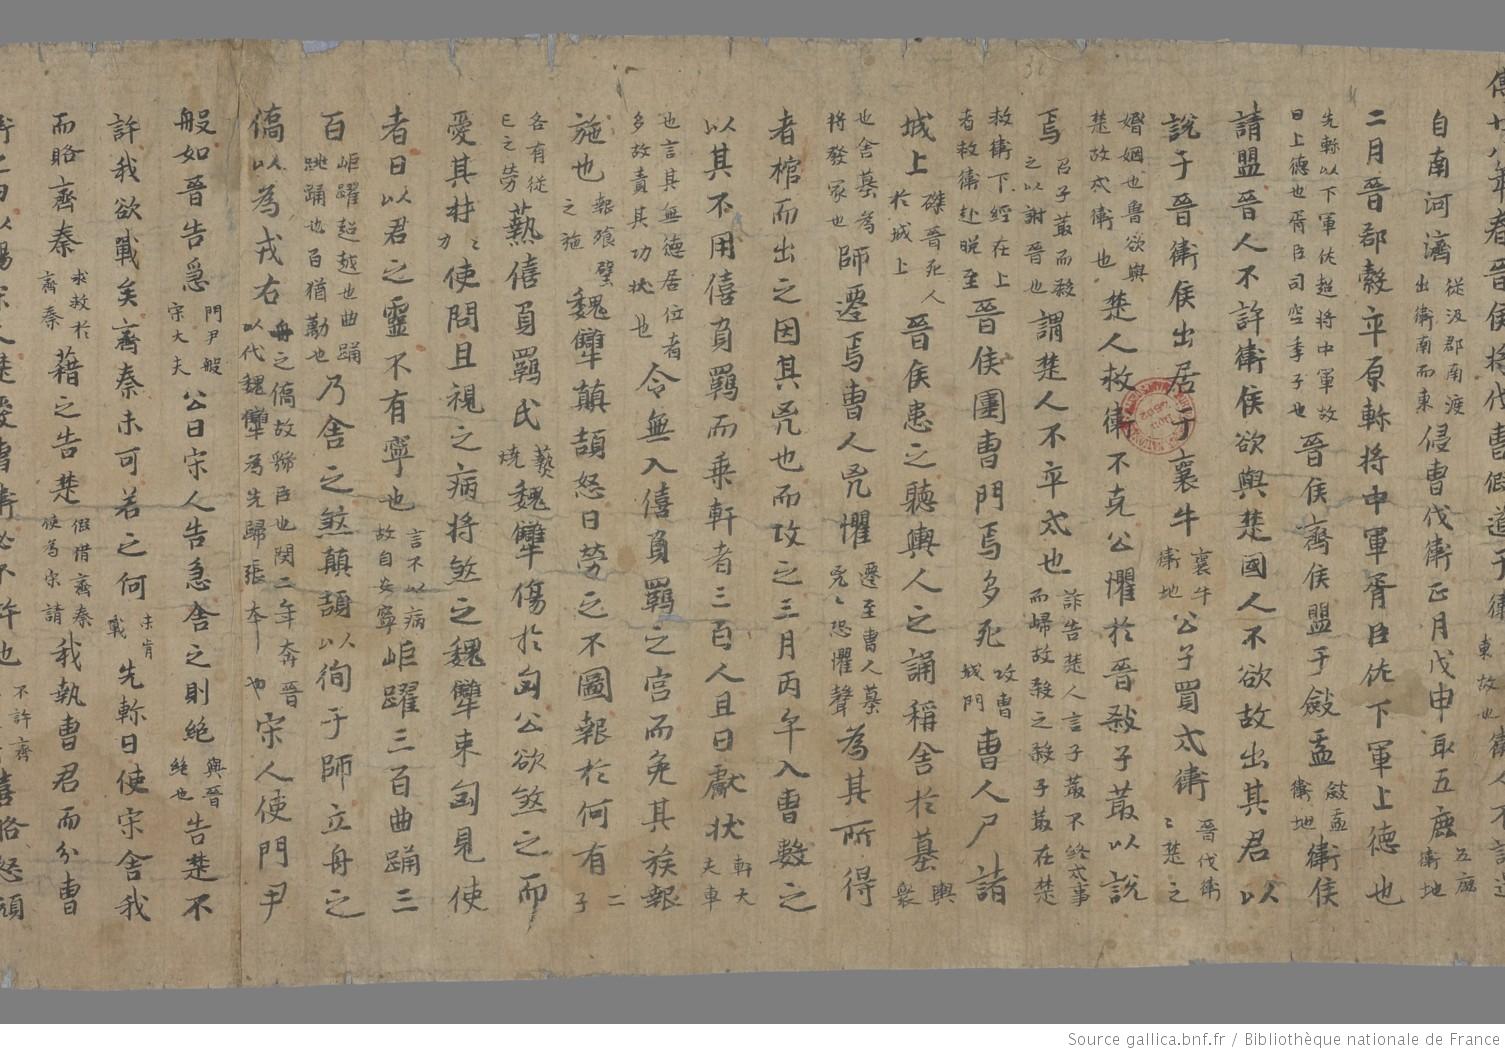 傳廿八年春晉侯將伐曹假道于衛東故也衛人不許還
自南河濟從汲郡南渡出衛南而東侵曹伐衛正月戊申取五鹿五鹿衛地
二月晉郄縠卒原軫將中軍胥臣佐下軍上德也
先軫以下軍佐超將中軍故曰上德也胥臣司空季子也晉侯齊侯盟于斂盂斂盂衛地衛侯
請盟晉人不許衛侯欲與楚國人不欲故出其君以
說于晉衛侯出居于襄牛襄牛衛地公子買戍衛晉伐衛ミ楚之
婚姻也魯欲與楚故戍衛也楚人救衛不克公懼於晉殺子菆以說
焉召子菆而殺之以謝晉也謂楚人不卒戍也詐告楚人言子菆不終戍事而歸故殺之殺子菆在楚
救衛下經在上者救衛赴晚至晉侯圍曹門焉多死攻曹城門曹人尸諸
城上磔晉死人於城上晉侯患之聽輿人之誦稱舍於墓輿衆
也舍墓為將發冢也師遷焉曹人兇懼遷至曹人墓兇ミ恐懼聲為其所得
者棺而出之因其兇也而攻之三月丙午入曹數之
以其不用僖負羈而乘軒者三百人且曰獻狀軒大夫車
也言其無德居位者多故責其功狀也令無入僖負羈之宮而免其族報
施也報飧璧之施魏犨顛頡怒曰勞之不圖報於何有二子
各有從亡之勞爇僖負羈氏爇燒魏犨傷於匈公欲煞之而
愛其材力ミ使問且視之病將煞之魏犨束匈見使
者曰以君之靈不有寧也言不以病故自安寧岠躍三百曲踊三
百岠躍超越也曲踊跳踊也百猶勸也乃舍之煞顛頡以徇于師立舟之
僑以為戎右舟之僑故虢臣也閔二年奔晉以代魏犨為先歸張本也宋人使門尹
般如晉告急門尹般宋大夫公曰宋人告急舍之則絕與晉絕也告楚不
許我欲戰矣齊秦未可若之何未肯戰先軫曰使宋舍我
而賂齊秦求救於齊秦藉之告楚假借齊秦使為宋請我執曹君而分曹
衛之田以賜宋人楚愛曹衛必不許也不許齊喜賂怒頑
Source gallica.bnf.fr / Bibliothèque nationale de France